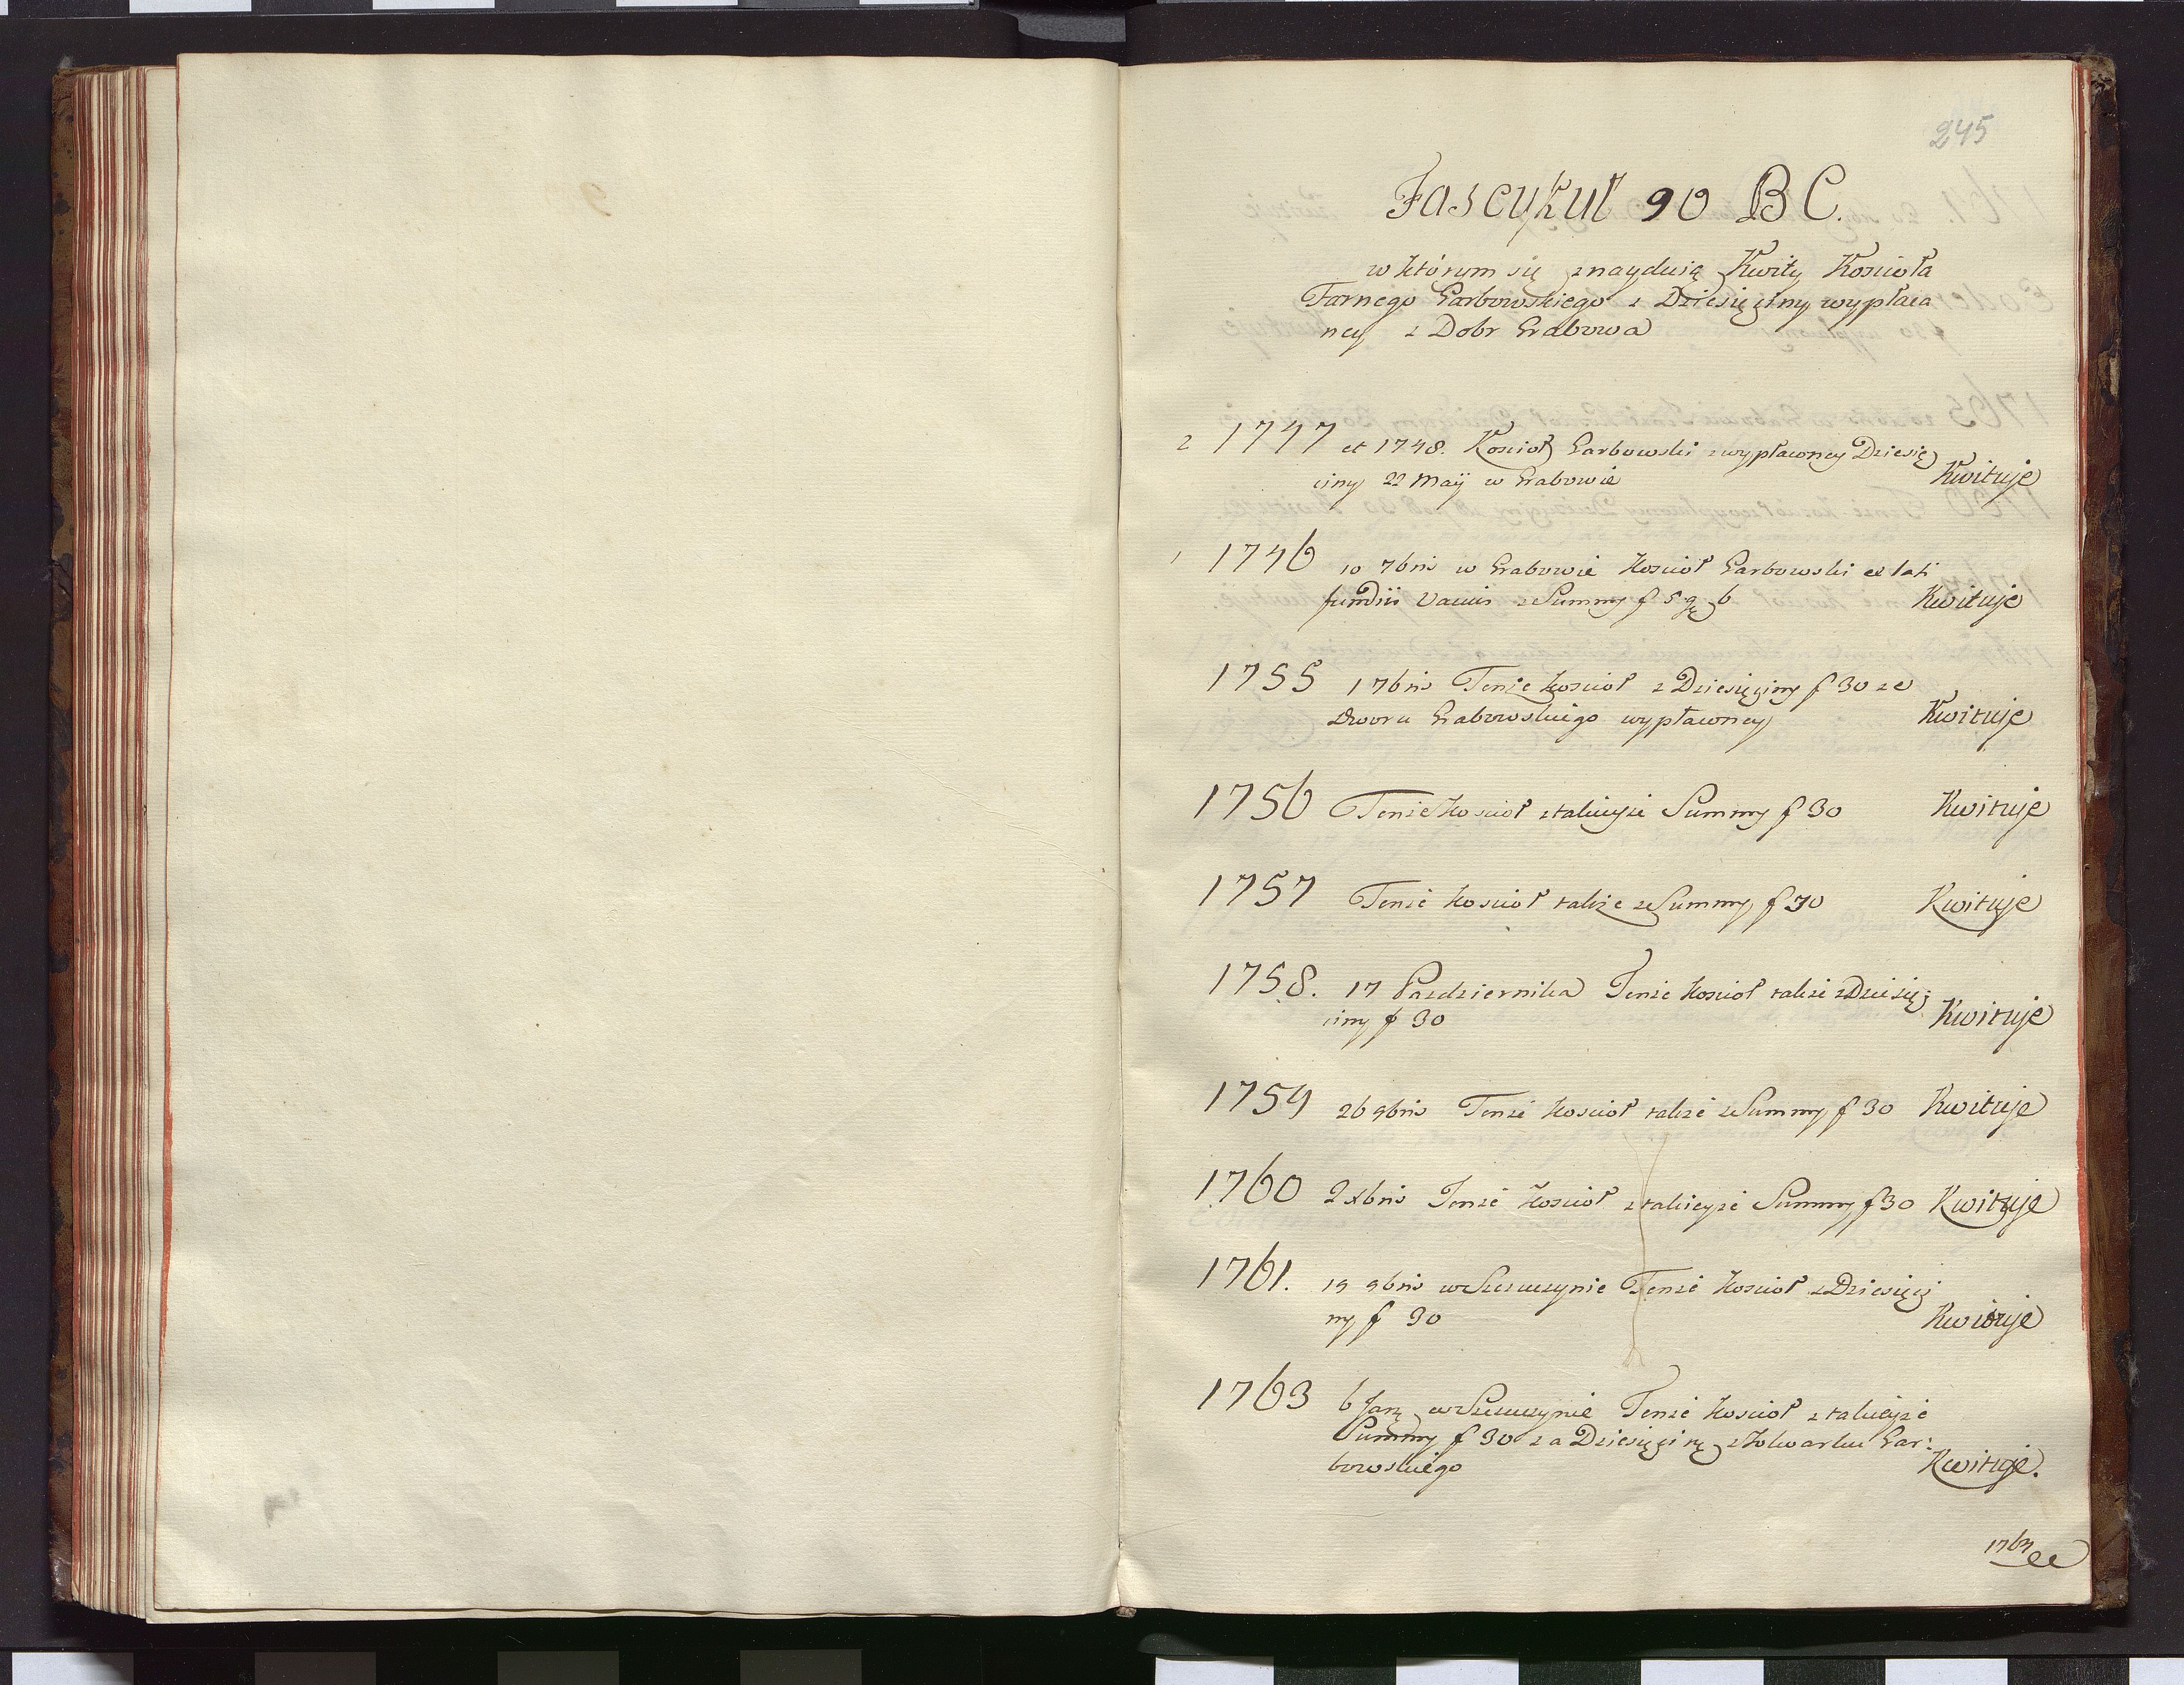 245
Fascykuł 90 BC.
w którym się znayduią Kwity Kościoła
Farnego Garbowskiego z Dziesięciny wypłaca
ney z Dobr Grabowa
2 1747 et 1748. Kościoł Garbowski z wypłaconey Dziesię
ciny 22 Maij w Grabowie Kwituje
1 1746 10 7bris w Grabowie Kościoł Garbowski ex lati
fundii z Summy f 5 g 6 Kwituje
1755 1 7bris Tenże Kościoł z Dziesięciny f 30 ze
Dworu Grabowskiego wypłaconey Kwituje
1756 Tenże Kościoł z takieyże Summy f 30 Kwituje
1757 Tenże Kościoł także z Summy f 30 Kwituje
1758. 17 Pazdziernika Tenże Kościoł także z Dziesię
ciny f 30 Kwituje
1759 26 9bris Tenże Kościoł także z Summy f 30 Kwituje
1760 2 xbris Tenże Kościoł z takieyże Summy f 30 Kwituje
1761. 19 9bris w Szczuczynie Tenże Kościoł z Dziesięci
ny f 30 Kwituje
1763 6 w Szczuczynie Tenże Kościoł z takieyże
Summy f 30 za Dziesięcinę z Folwarku Gar:
bowskiego Kwituje.